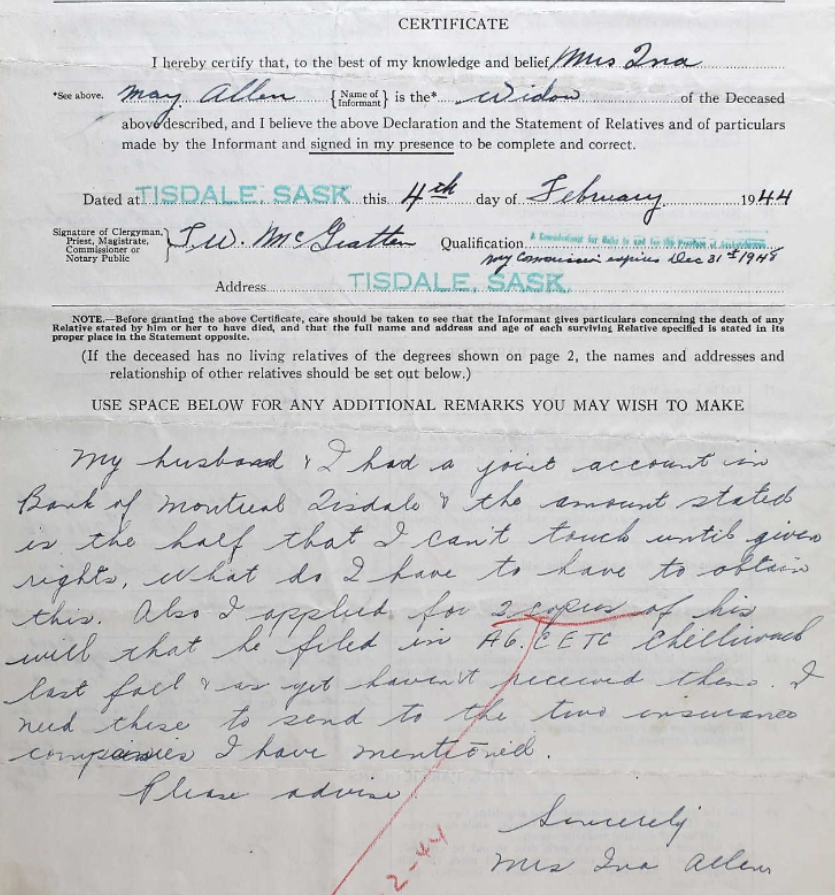 CERTIFICATE
I hereby certify that, to the best of my knowledge and belief, Mrs Ina
*See above. May Allen {Name of Informant} is the* Widow of the Deceased
above described, and I believe the above Declaration and the Statement of Relatives and of particulars
made by the Informant and signed in my presence to be complete and correct.
Dated at TISDALE, SASK this 4th day of February 1944
Signature of Clergyman, Priest, Magistrate, Commissioner or Notary Public} T.W. McGratten Qualification A Commissioner for Oaths in and for the Province of Saskatchewan
My Commission expires Dec 31st 1948
Address TISDALE, SASK.
NOTE.—Before granting the above Certificate, care should be taken to see that the Informant gives particulars concerning the death of any
Relative stated by him or her to have died, and that the full name and address and age of each surviving Relative specified is stated in its
proper place in the Statement opposite.
(If the deceased has no living relatives of the degrees shown on page 2, the names and addresses and
relationship of other relatives should be set out below.)
USE SPACE BELOW FOR ANY ADDITIONAL REMARKS YOU MAY WISH TO MAKE
My husband & I had a joint account in
Bank of Montreal Tisdale & the amount stated
is the half that I can't touch until given
rights, What do I have to have to obtain
this. Also I applied for 2 copies of his
will that he filed in A6. CETC Chilliwack
last fall & as yet haven't received them. I
need these to send to the two insurance
companies I have mentioned.
Please advise
Sincerely
Mrs Ina Allen
2-44